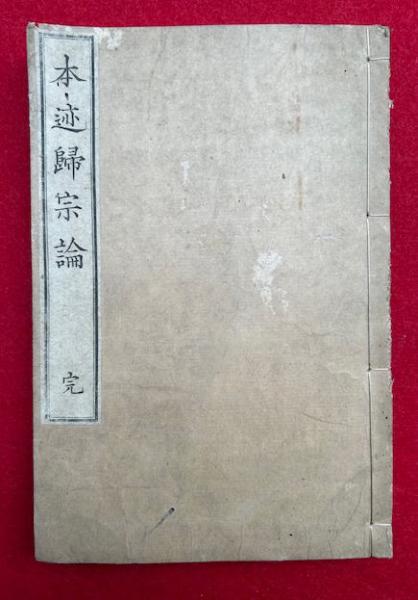 本迹歸宗論
完